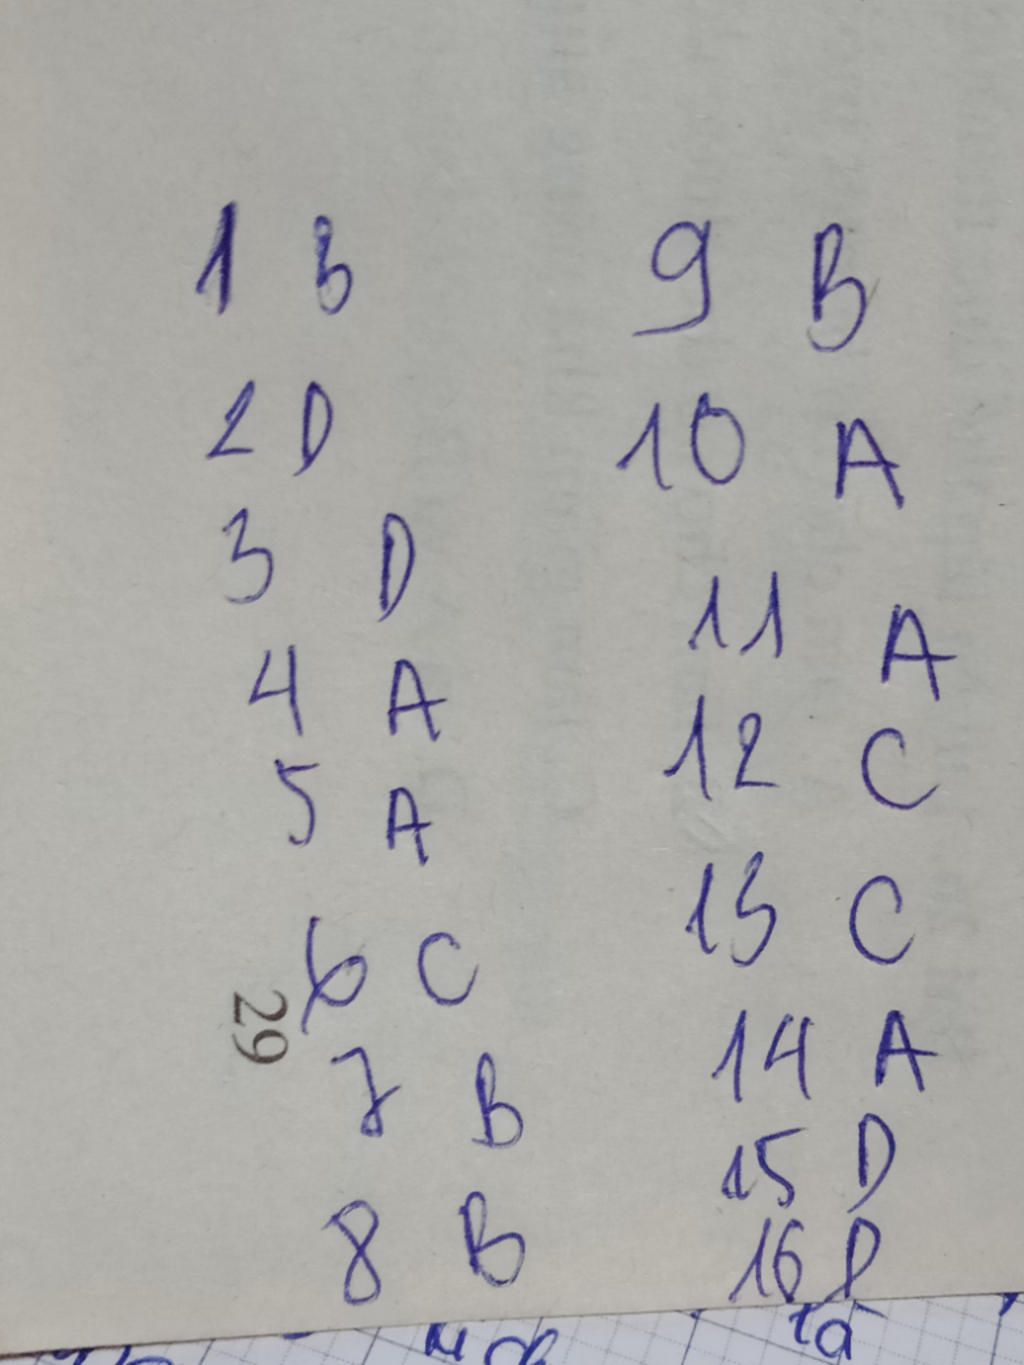 1 B
2 D
3 D
4 A
5 A
6 C
29
7 B
8 B
9 B
10 A
11 A
12 C
13 C
14 A
15 D
16 D